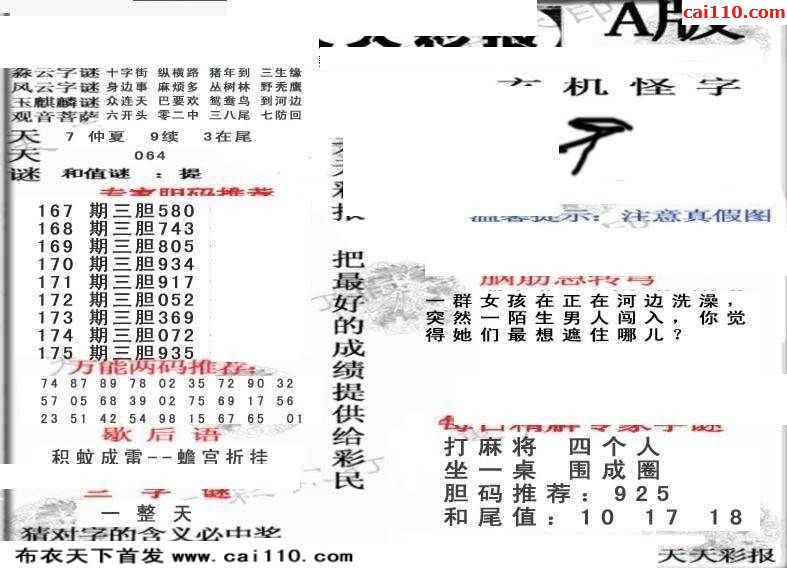 cai110.com
A版
天天彩报
森云字谜 十字街 纵横路 猪年到 三生缘
风云字谜 身边事 麻烦多 丛树林 野秃鹰
玉麒麟谜 众连天 巴要欢 鸳鸯鸟 到河边
观音菩萨 六开头 零二中 三八尾 七防回
天 7 仲夏 9续 3在尾
天 064
谜 和值谜 : 提
专家胆码推荐
167 期三胆580
168 期三胆743
169 期三胆805
170 期三胆934
171 期三胆917
172 期三胆052
173 期三胆369
174 期三胆072
175 期三胆935
万能两码推荐:
74 87 89 78 02 35 72 90 32
57 05 68 39 02 75 69 17 56
23 51 42 54 98 15 67 65 01
歇后语
积蚊成雷--蟾宫折挂
三字谜
一整天
猜对字的含义必中奖
布衣天下首发 www.cai110.com
天天彩报
把最好的成绩提供给彩民
玄机怪字
温馨提示: 注意真假图
脑筋急转弯
一群女孩在正在河边洗澡，
突然一陌生男人闯入，你觉
得她们最想遮住哪儿？
每日精解专家字谜
打麻将 四个人
坐一桌 围成圈
胆码推荐: 925
和尾值: 10 17 18
天天彩报